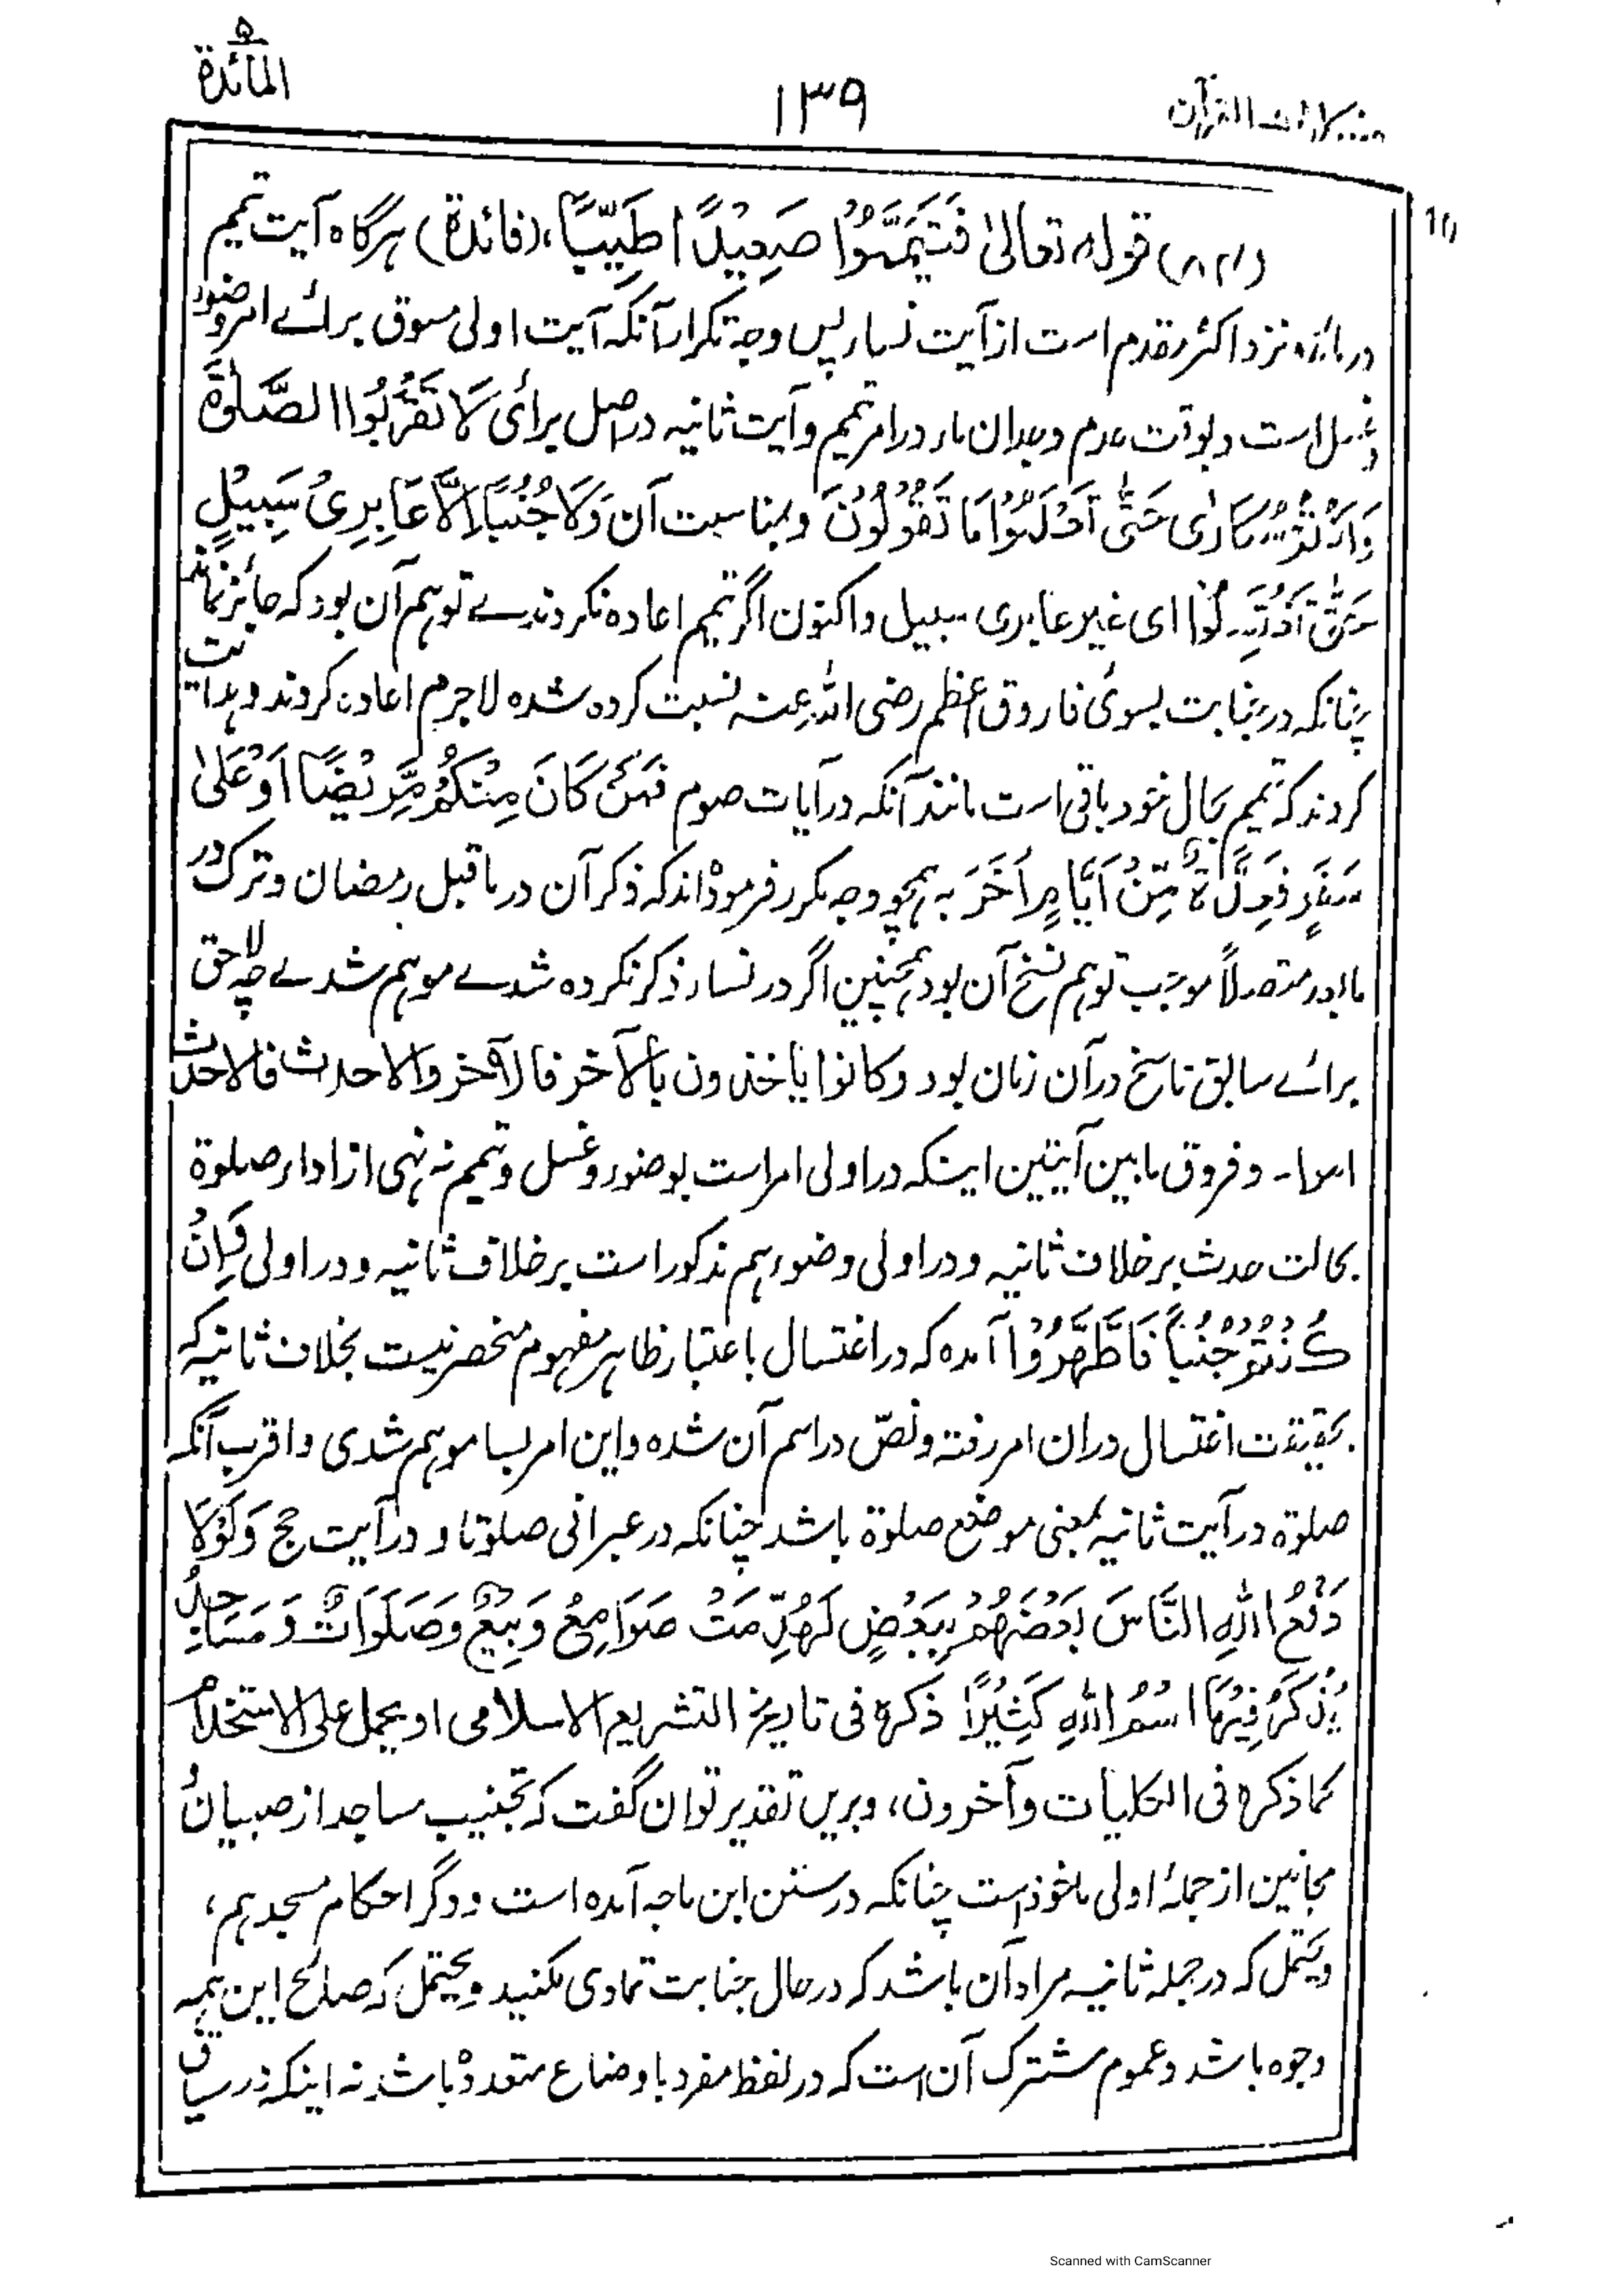 المائدة
۵
۱۳۹
مشکلات القرآن
(۸۲) قوله تعالیٰ فَتَيَمَّمُوْا صَعِيْدًا طَيِّبًا، (فائدة) ہرگاہ آیت تیمم
در مائدہ نزد اکثر مقدم است از آیت نساء پس وجہ تکرار آنکہ آیت اولی مسوق برائے امر وضوء
وغسل است وبوقت عدم وجدان ماء در امر تیمم وآیت ثانیہ در اصل برائی لَا تَقْرَبُوا الصَّلٰوةَ
وَاَنْتُمْ سُكَارٰى حَتّٰى تَعْلَمُوْا مَا تَقُوْلُوْنَ وبمناسبت آن وَلَا جُنُبًا اِلَّا عَابِرِىْ سَبِيْلٍ
حَتّٰى تَغْتَسِلُوْا ای غیر عابری سبیل واکنون اگر تیمم اعادہ نکردندے توہم آن بود کہ جائز نماند
چنانکہ در جنابت بسوئی فاروق اعظم رضی اللہ عنہ نسبت کردہ شدہ لاجرم اعادہ کردند وہدایت
کردند کہ تیمم بحال خود باقی است مانند آنکہ در آیات صوم فَمَنْ كَانَ مِنْكُمْ مَّرِيْضًا اَوْ عَلٰى
سَفَرٍ فَعِدَّةٌ مِّنْ اَيَّامٍ اُخَرَ بہ ہمچو وجہ مکرر فرمودہ اند کہ ذکر آن در ما قبل رمضان وترک در
مابعد متصلاً موجب توہم نسخ آن بود ہمچنین اگر در نساء ذکر نکردہ شدے موہم شدے چہ لاحق
برائے سابق ناسخ در آن زمان بود وکانوا یاخذون بالآخر فالآخر والاحدث فالاحدث
وفروق مابین آیتین اینکہ در اولی امر است بوضوء وغسل وتیمم نہ نہی از اداء صلوة
بحالت حدث برخلاف ثانیہ ودر اولی وضوء ہم مذکور است برخلاف ثانیہ ودر اولی فَاِنْ
كُنْتُمْ جُنُبًا فَاطَّهَّرُوْا آمدہ کہ در اغتسال باعتبار ظاہر مفہوم منحصر نیست بخلاف ثانیہ کہ
بحقیقت اغتسال دران امر رفتہ ونصّ در اسم آن شدہ واین امر بسا موہم شدی واقرب آنکہ
صلوة در آیت ثانیہ بمعنی موضع صلوة باشد چنانکہ در عبرانی صلوتا و در آیت حج وَلَوْلَا
دَفْعُ اللهِ النَّاسَ بَعْضَهُمْ بِبَعْضٍ لَهُدِّمَتْ صَوَامِعُ وَبِيَعٌ وَصَلَوَاتٌ وَمَسَاجِدُ
يُذْكَرُ فِيْهَا اسْمُ اللهِ كَثِيْرًا ذکرہ فی تاریخ التشریع الاسلامی او یحمل علی الاستخدام
کما ذکرہ فی الکلیات وآخرون، وبریں تقدیر توان گفت کہ تجنیب مساجد از صبیان و
مجانین از جملۂ اولی ماخوذ است چنانکہ در سنن ابن ماجہ آمدہ است ودگر احکام مسجد ہم،
ویحتمل کہ در جملہ ثانیہ مراد آن باشد کہ در حال جنابت تمادی مکنید ویحتمل کہ صالح این ہمہ
وجوہ باشد وعموم مشترک آن است کہ در لفظ مفرد باوضاع متعددہ باشد نہ اینکہ در سیاق
Scanned with CamScanner